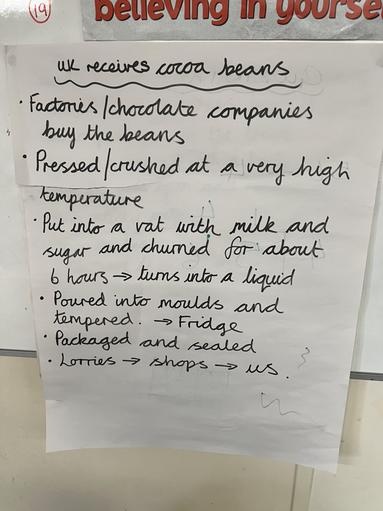 19
believing in yourse
UK receives cocoa beans
• Factories/chocolate companies
buy the beans
• Pressed/crushed at a very high
temperature
• Put into a vat with milk and
sugar and churned for about
6 hours → turns into a liquid
• Poured into moulds and
tempered. → Fridge
• Packaged and sealed
• Lorries → shops → us.